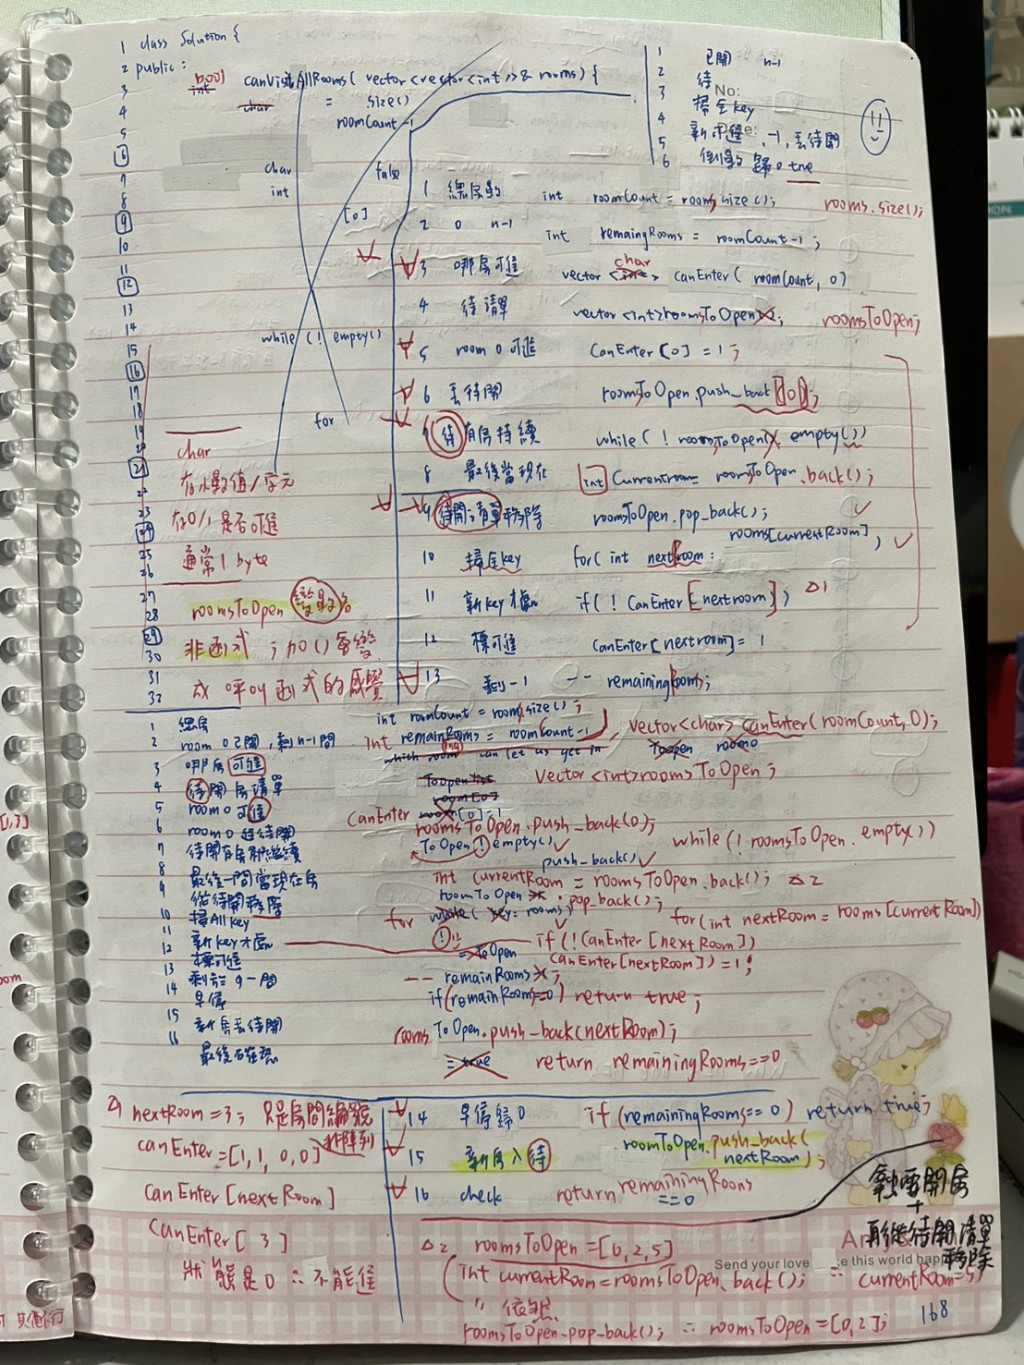 1 class Solution {
2 public:
3 bool canVisitAllRooms( vector<vector<int>>& rooms) {
4 char = size()
5 roomCount-1
6
7 char false
8 int
9 [0]
10
11
12
13
14
15 while (! empty()
16
17
18
19 for
20
21
22
23
24
25
26
27
28
29
30
31
32
1 已開 n-1
2 待
3 No:
掃全key
4
5 -1, 丟待開
6 倒數 歸0 true
1 總房數 int roomCount = rooms.size(); rooms.size();
2 0 n-1 int remaingRooms = roomCount-1;
3 哪房可進 vector<char> canEnter( roomCount, 0)
4 待清單 vector<int>roomsToOpen; roomsToOpen;
5 room 0 可進 canEnter[0] = 1;
6 丟待開 roomsToOpen.push_back(0);
7 待有房持續 while( ! roomsToOpen. empty())
8 最後當現在 int Currentroom = roomsToOpen.back();
9 待開清單移除 roomsToOpen.pop_back();
10 掃全key for( int nextroom : rooms[currentRoom])
11 新key才處 if( ! CanEnter[nextroom]) △1
12 標可進 canEnter[nextroom] = 1
13 剩-1 -- remainingRooms;
char
存小數值/字元
存0/1 是否可進
通常1 byte
roomsToOpen 變數名
非函式 ; 加() 會變
成 呼叫函式的感覺
1 總房
2 room 0 已開, 剩n-1間
3 哪房可進
4 待開房清單
5 room 0 可進
6 room 0 進待開
7 待開有房就繼續
8 最後一間當現在房
9 從待開移除
10 掃All key
11 新key才處
12 標可進
13 剩
14 早停
15 新房丟待開
16 最後
int roomCount = rooms.size();
int remainRooms = roomCount-1 vector<char> canEnter(roomCount, 0);
which room can let us get in
Toopen room0
Toopen list vector<int>roomsToOpen;
room[0]
canEnter [0]=1
roomsToOpen.push_back(0);
ToOpen ! empty() while(!roomsToOpen. empty())
push_back()
int currentRoom = roomsToOpen.back(); △2
roomToOpen .pop_back();
for while( key: rooms) for(int nextRoom = rooms[currentRoom])
! if(!CanEnter[nextRoom])
= ToOpen canEnter[nextRoom]) = 1;
-- remainRooms;
if(remainRooms==0) return true;
roomsToOpen.push_back(nextRoom);
= true return remainingRooms==0
nextRoom = 3; 只是房間編號
非陣列
canEnter = [1, 1, 0, 0]
canEnter[nextRoom]
canEnter[ 3 ]
狀態是0 ∴不能進
14 早停歸0 if(remainingRooms== 0) return true;
15 新房入待 roomToOpen.push_back(
nextRoom);
16 check return remainingRooms
==0
△2 roomsToOpen = [0, 2, 5]
int currentRoom = roomsToOpen. back(); ∴ currentRoom=5
" 依然
roomsToOpen.pop_back(); ∴ roomsToOpen = [0,2];
開房
+
再從待開清單
移除
Send your love
e this world happ
168